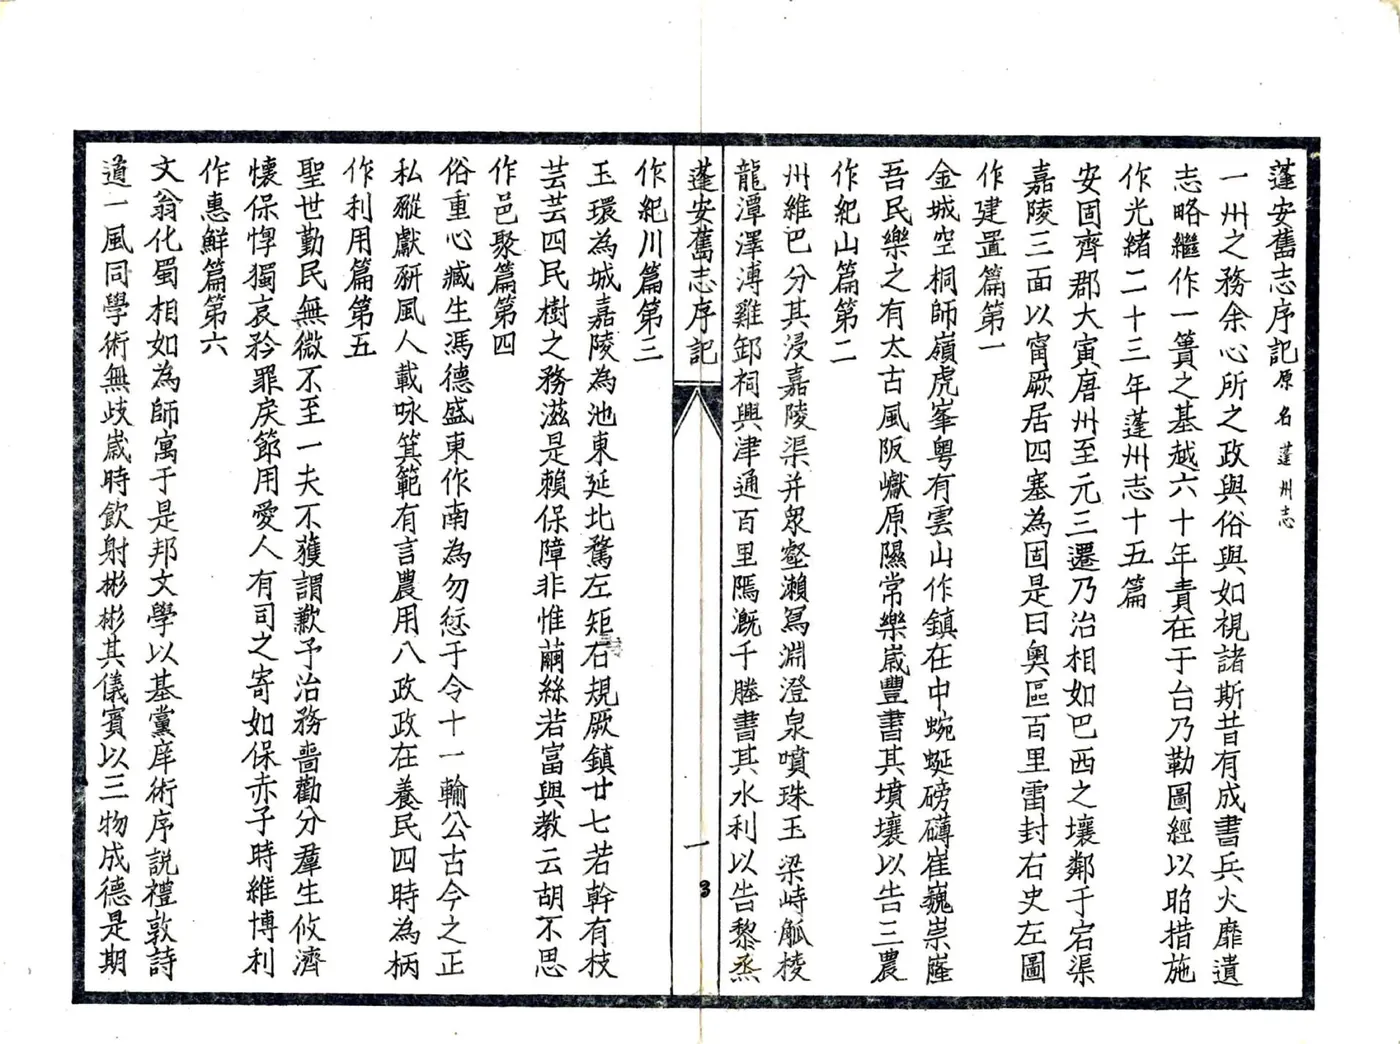 蓬安舊志序記原名蓬州志
一州之務余心所之政與俗與如視諸斯昔有成書兵火靡遺
志略繼作一簣之基越六十年責在于台乃勒圖經以昭措施
作光緒二十三年蓬州志十五篇
安固齊郡大寅唐州至元三遷乃治相如巴西之壤鄰于宕渠
嘉陵三面以甯厥居四塞為固是曰奧區百里雷封右史左圖
作建置篇第一
金城空桐師嶺虎峯粤有雲山作鎮在中蜿蜒磅礴崔巍崇隆
吾民樂之有太古風阪巘原隰常樂嵗豐書其墳壤以告三農
作紀山篇第二
州維巴分其浸嘉陵渠并衆壑瀨寫淵澄泉噴珠玉梁峙觚棱
龍潭澤溥雞卸祠興津通百里隖溉千塍書其水利以告黎烝
蓬安舊志序記
一
3
作紀川篇第三
玉環為城嘉陵為池東延北騖左矩右規厥鎮廿七若幹有枝
芸芸四民樹之務滋是賴保障非惟繭絲若富與教云胡不思
作邑聚篇第四
俗重心臧生馮德盛東作南為勿愆于令十一輸公古今之正
私豵獻豜風人載咏箕範有言農用八政政在養民四時為柄
作利用篇第五
聖世勤民無微不至一夫不獲謂歉予治務嗇勸分羣生攸濟
懷保惸獨哀矜罪戾節用愛人有司之寄如保赤子時維博利
作惠鮮篇第六
文翁化蜀相如為師寓于是邦文學以基黨庠術序説禮敦詩
道一風同學術無歧嵗時飲射彬彬其儀賓以三物成德是期